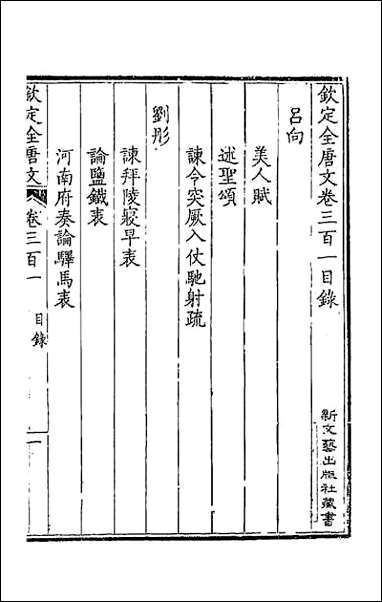 欽定全唐文卷三百一目錄
新文藝出版社藏書
呂向
美人賦
述聖頌
諫令突厥入仗馳射疏
劉彤
諫拜陵寢早表
論鹽鐵表
河南府奏論驛馬表
欽定全唐文 卷三百一 目錄 一